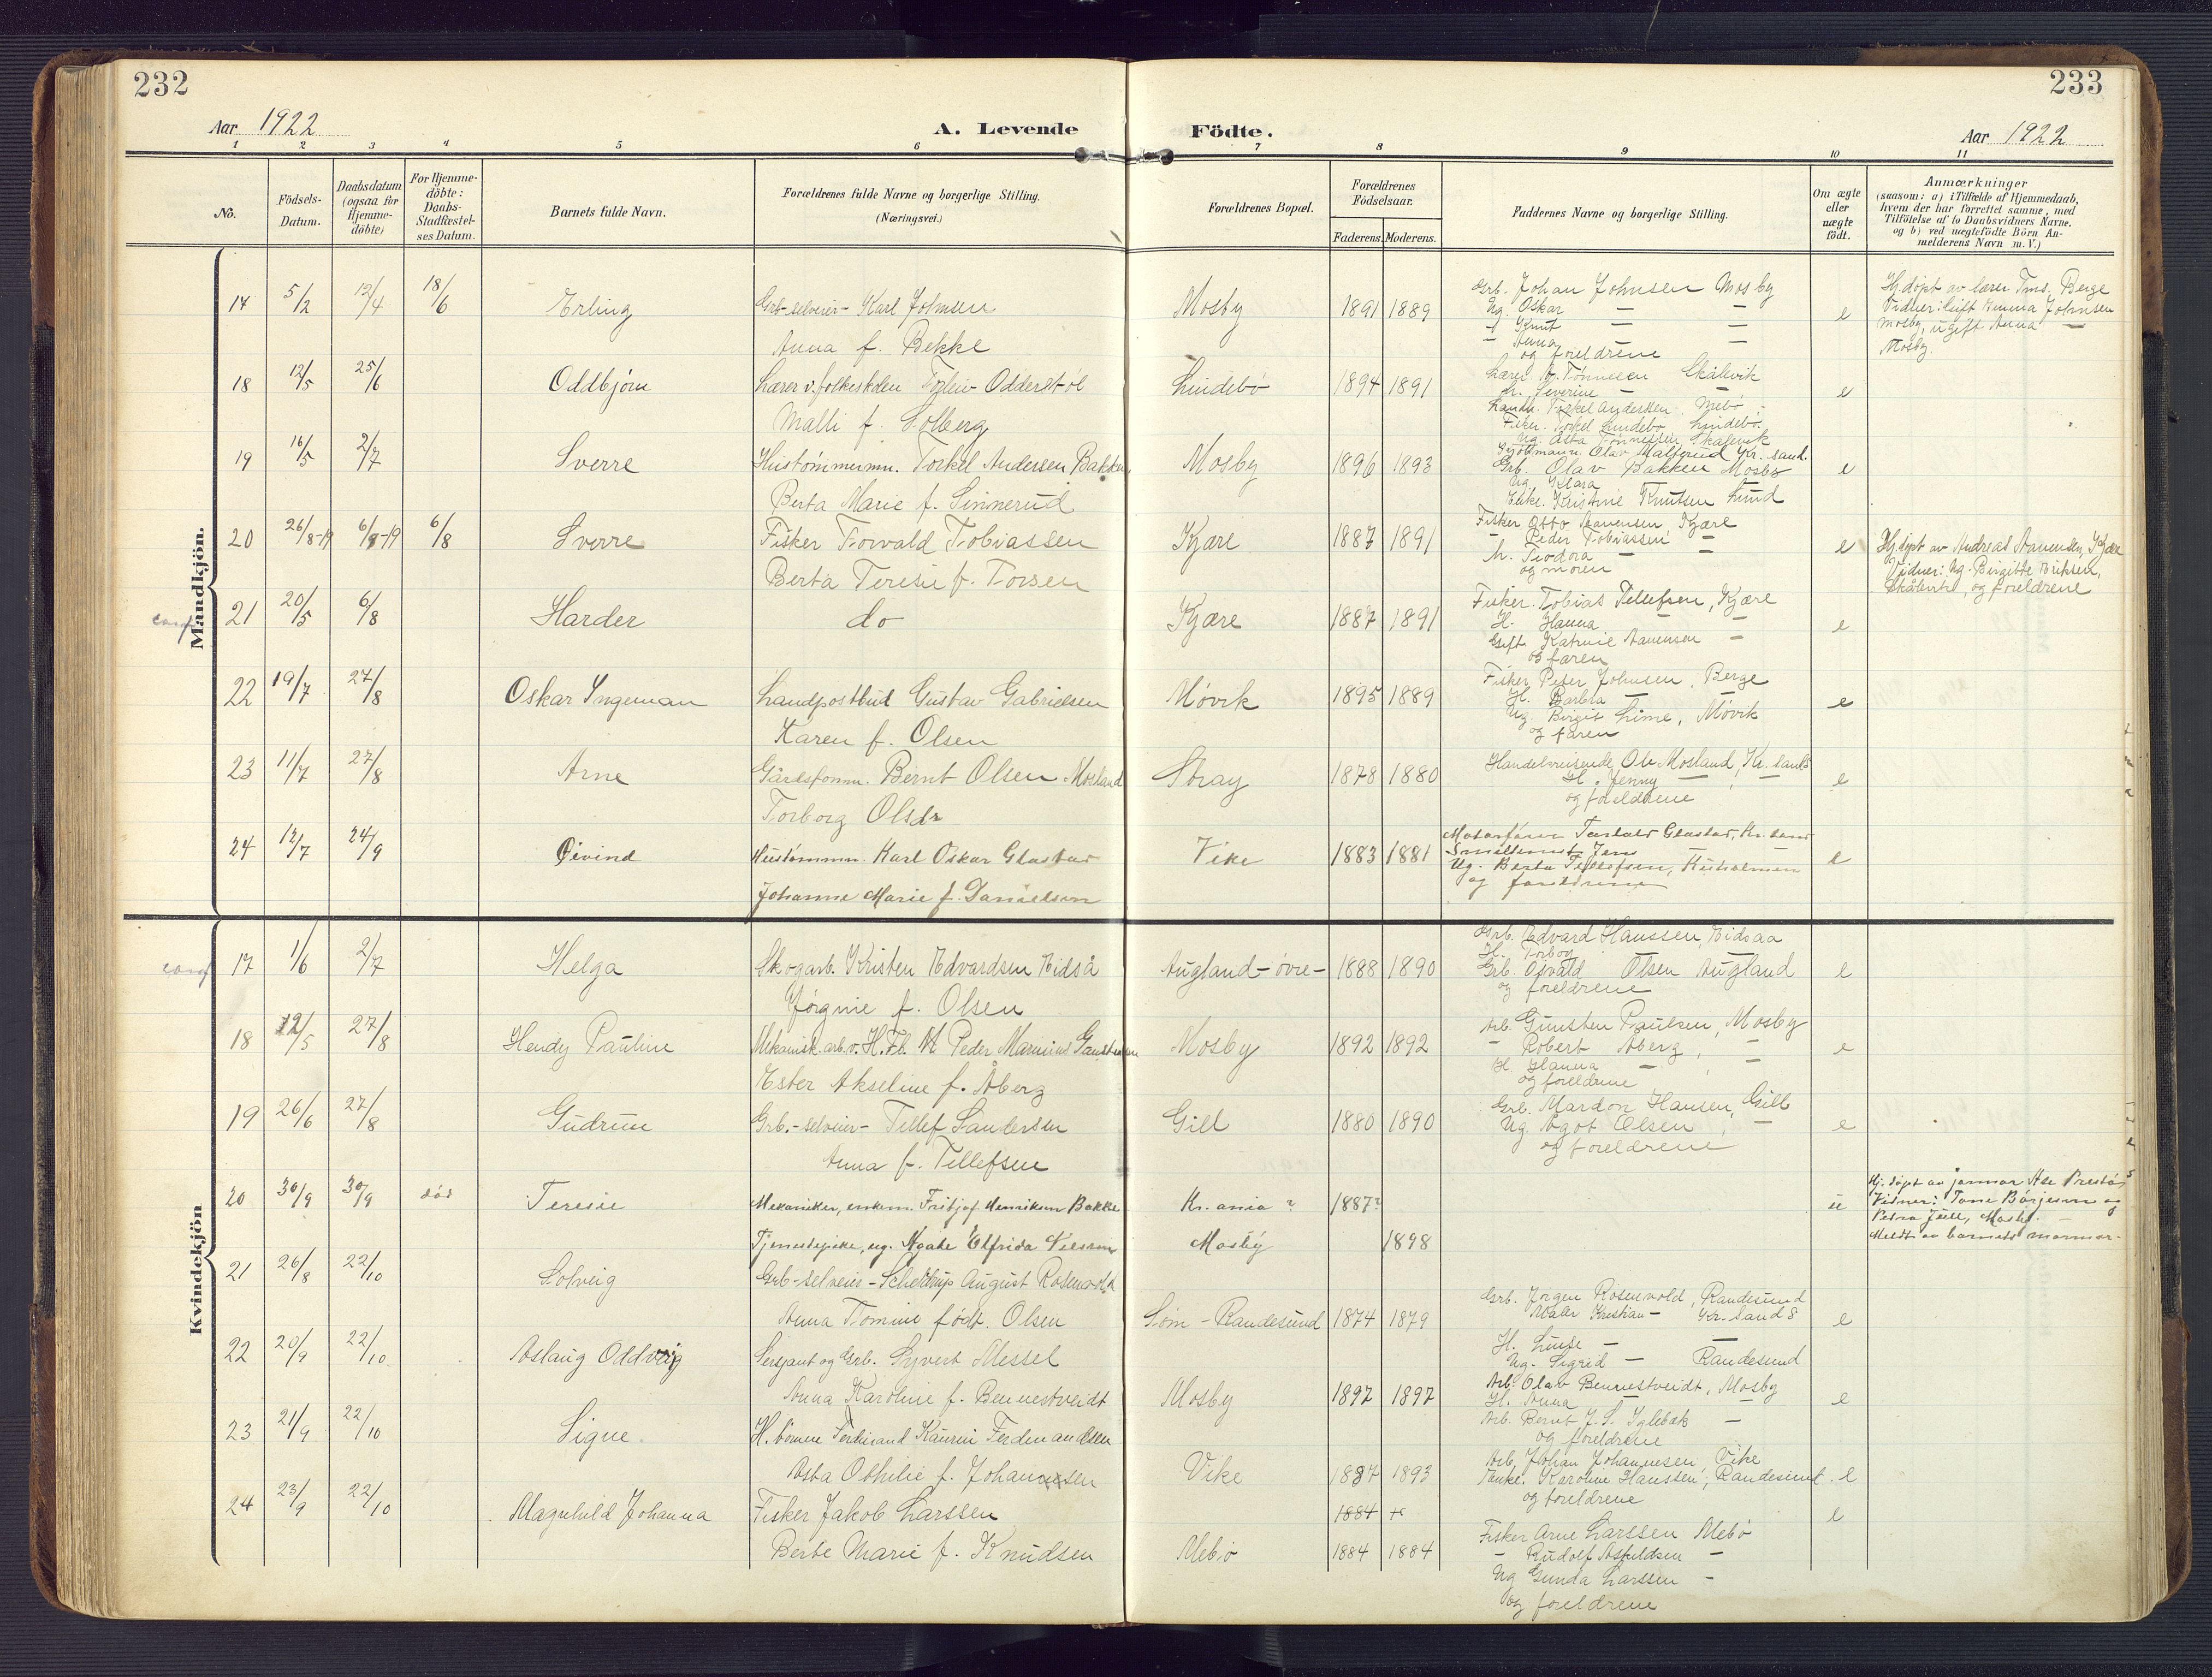 232
233
Aar 1922
A. Levende
Födte.
Aar 1922
1 2 3 4 5 6 7 8 9 10 11
No.
Födsels-Datum.
Daabsdatum (ogsaa for Hjemme-döbte)
For Hjemme-döbte: Daabs-Stadfæstel-ses Datum.
Barnets fulde Navn.
Forældrenes fulde Navne og borgerlige Stilling.
(Næringsvei.)
Forældrenes Bopæl.
Forældrenes Födselsaar.
Faderens. Moderens.
Faddernes Navne og borgerlige Stilling.
Om ægte eller uægte födt.
Anmærkninger
(saasom: a) i Tilfælde af Hjemmedaab,
hvem der har forrettet samme, med
Tilföielse af to Daabsvidners Navne.
og b) ved uægtefödte Börn An-
melderens Navn m. V.)
Mandkjön.
17 5/2 12/4 18/6 Erling Grb-selveier- Karl Johnsen
Anna f. Bekke
Mosby 1891 1889
Grb. Johan Johnsen Mosby
Ug. Oskar — —
- Knut — —
- Anna — —
og foreldrene
e
Hj.døpt av lærer Tms. Berge
Vidner: Gift Emma Johnsen
Mosby, ugift Anna —
Mosby.
18 12/5 25/6 Oddbjørn Lærer v. folkeskolen Torleiv Odderstøl
Malli f. Solberg
Lindebø 1894 1891
Lærer Tønnesen Skålevik
H. Severine —
Landh. Torkel Andersen Mebø
Fisker. Torkel Lindebø Lindebø.
Ug. Asta Tønnesen Skålevik
e
19 16/5 2/7 Sverre Hustømmermn. Torkel Andersen Bakken
Berta Marie f. Sinnerud
Mosby 1896 1893
Olav Malterud Kr.sand.
Grb. Olav Bakken Mosby
Ug. Klara
Enke. Kristine Knutsen Lund
e
20 26/8-19 6/8-19 6/8 Sverre Fisker Torvald Tobiassen
Berta Teresie f. Torsen
Kjære 1887 1891
Fisker Otto Aanensen, Kjære
- Peder Tobiassen —
H. Teodora — —
og moren
e
Hj.døpt av Andreas Aanensen, Kjære
Vidner: Ug. Birgitte Eriksen,
Skålevik, og foreldrene
conf 21 20/5 6/8 Harder do
Kjære 1887 1891
Fisker. Tobias Tellefsen, Kjære
H. Hanna —
Gift Katrine Aanensen —
og faren
e
22 19/7 27/8 Oskar Ingeman Landpostbud Gustav Gabrielsen
Karen f. Olsen
Møvik 1895 1889
Fisker Peter Johnsen, Berge
H. Barbra — —
Ug. Birgit Lime, Møvik
og faren
e
23 11/7 27/8 Arne Gårdsfomn. Bernt Olsen Mosland
Torborg Olsdr
Stray 1878 1880
Handelsreisende Ole Mosland, Kr. sands
H. Jenny — —
og foreldrene
e
24 12/7 24/9 Øivind Hustømmn. Karl Oskar Glastad
Johanne Marie f. Danielsen
Vike 1883 1881
Motorfører Torvald Glastad, Kr. sand
Jens — —
Ug. Berta Tellefsen, Kuholmen
og foreldrene
e
Kvindekjön
conf 17 1/6 2/7 Helga Skogarb. Kristen Edvardsen Eidså
Jørgine f. Olsen
Augland - øvre - 1888 1890
Grb. Edvard Hanssen, Eidsaa
H. Torbog — —
Grb. Osvald Olsen Augland
og foreldrene
e
18 12/5 27/8 Hendy Pauline Mekanisk arb. v. H. Fl. M Peder Marinius Gunstensen
Ester Akseline f. Åberg
Mosby 1892 1892
Arb. Gunsten Paulsen, Mosby
- Robert Åberg, —
H. Hanna — —
og foreldrene
e
19 26/6 27/8 Gudrun Grb.-selveier- Tellef Sandersen
Anna f. Tellefsen
Gill 1880 1890
Grb. Mardon Hansen, Gill
Ug. Ågot Olsen, —
og foreldrene
e
20 30/9 30/9 død Teresie Mekaniker, enkem. Fritjof Henriksen Bakke
Tjenestepike, ug. Agate Elfrida Nilsen
Kr.ania ? 1887?
Mosby 1898
u
Hj. døpt av jormor Ale Prestø,
Vidner: Tone Børjesen og
Petra Juell, Mosby.
Meldt av barnets mormor.
21 26/8 22/10 Solveig Grb-selveier- Scheldrup August Rosenvold
Anna Tomine født. Olsen
Søm - Randesund 1874 1879
Grb. Jørgen Rosenvold, Randesund
Maler Kristian — Kr. Sand S
H. Luise — —
Ug. Sigrid — Randesund
e
22 20/9 22/10 Aslaug Oddveig Sersjant og Grb. Syvert Messel
Anna Karoline f. Bennestveidt
Mosby 1897 1897
Arb. Olav Bennestveidt, Mosby
H. Anna — —
Arb. Bernt J. S. Iglebæk —
og foreldrene
e
23 21/9 22/10 Signe H.tømm Ferdinand Kaurin Ferdinandsen
Asta Othilie f. Johannesen
Vike 1887 1893
Arb. Johan Johannesen, Vike
Enke. Karoline Hanssen, Randesund
og foreldrene
e
24 23/9 22/10 Magnhild Johanna Fisker Jakob Larssen
Berte Marie f. Knudsen
1884
Mebø 1884 1884
e
Fisker Arne Larssen Mebø
- Rudolf Asfeldsen —
Ug Gunda Larssen —
og foreldrene